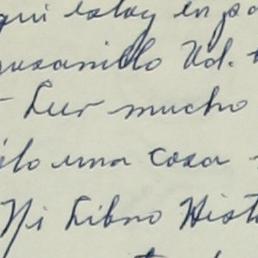 qui estoy en pa
gusanillo Ud. t
Leer mucho
ólo una cosa
Ni Libro Hist